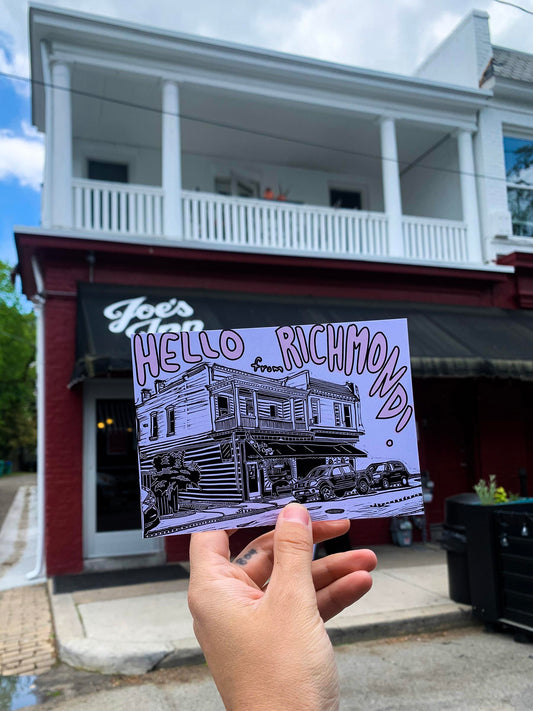 Joe's
Inn
HELLO from RICHMOND!